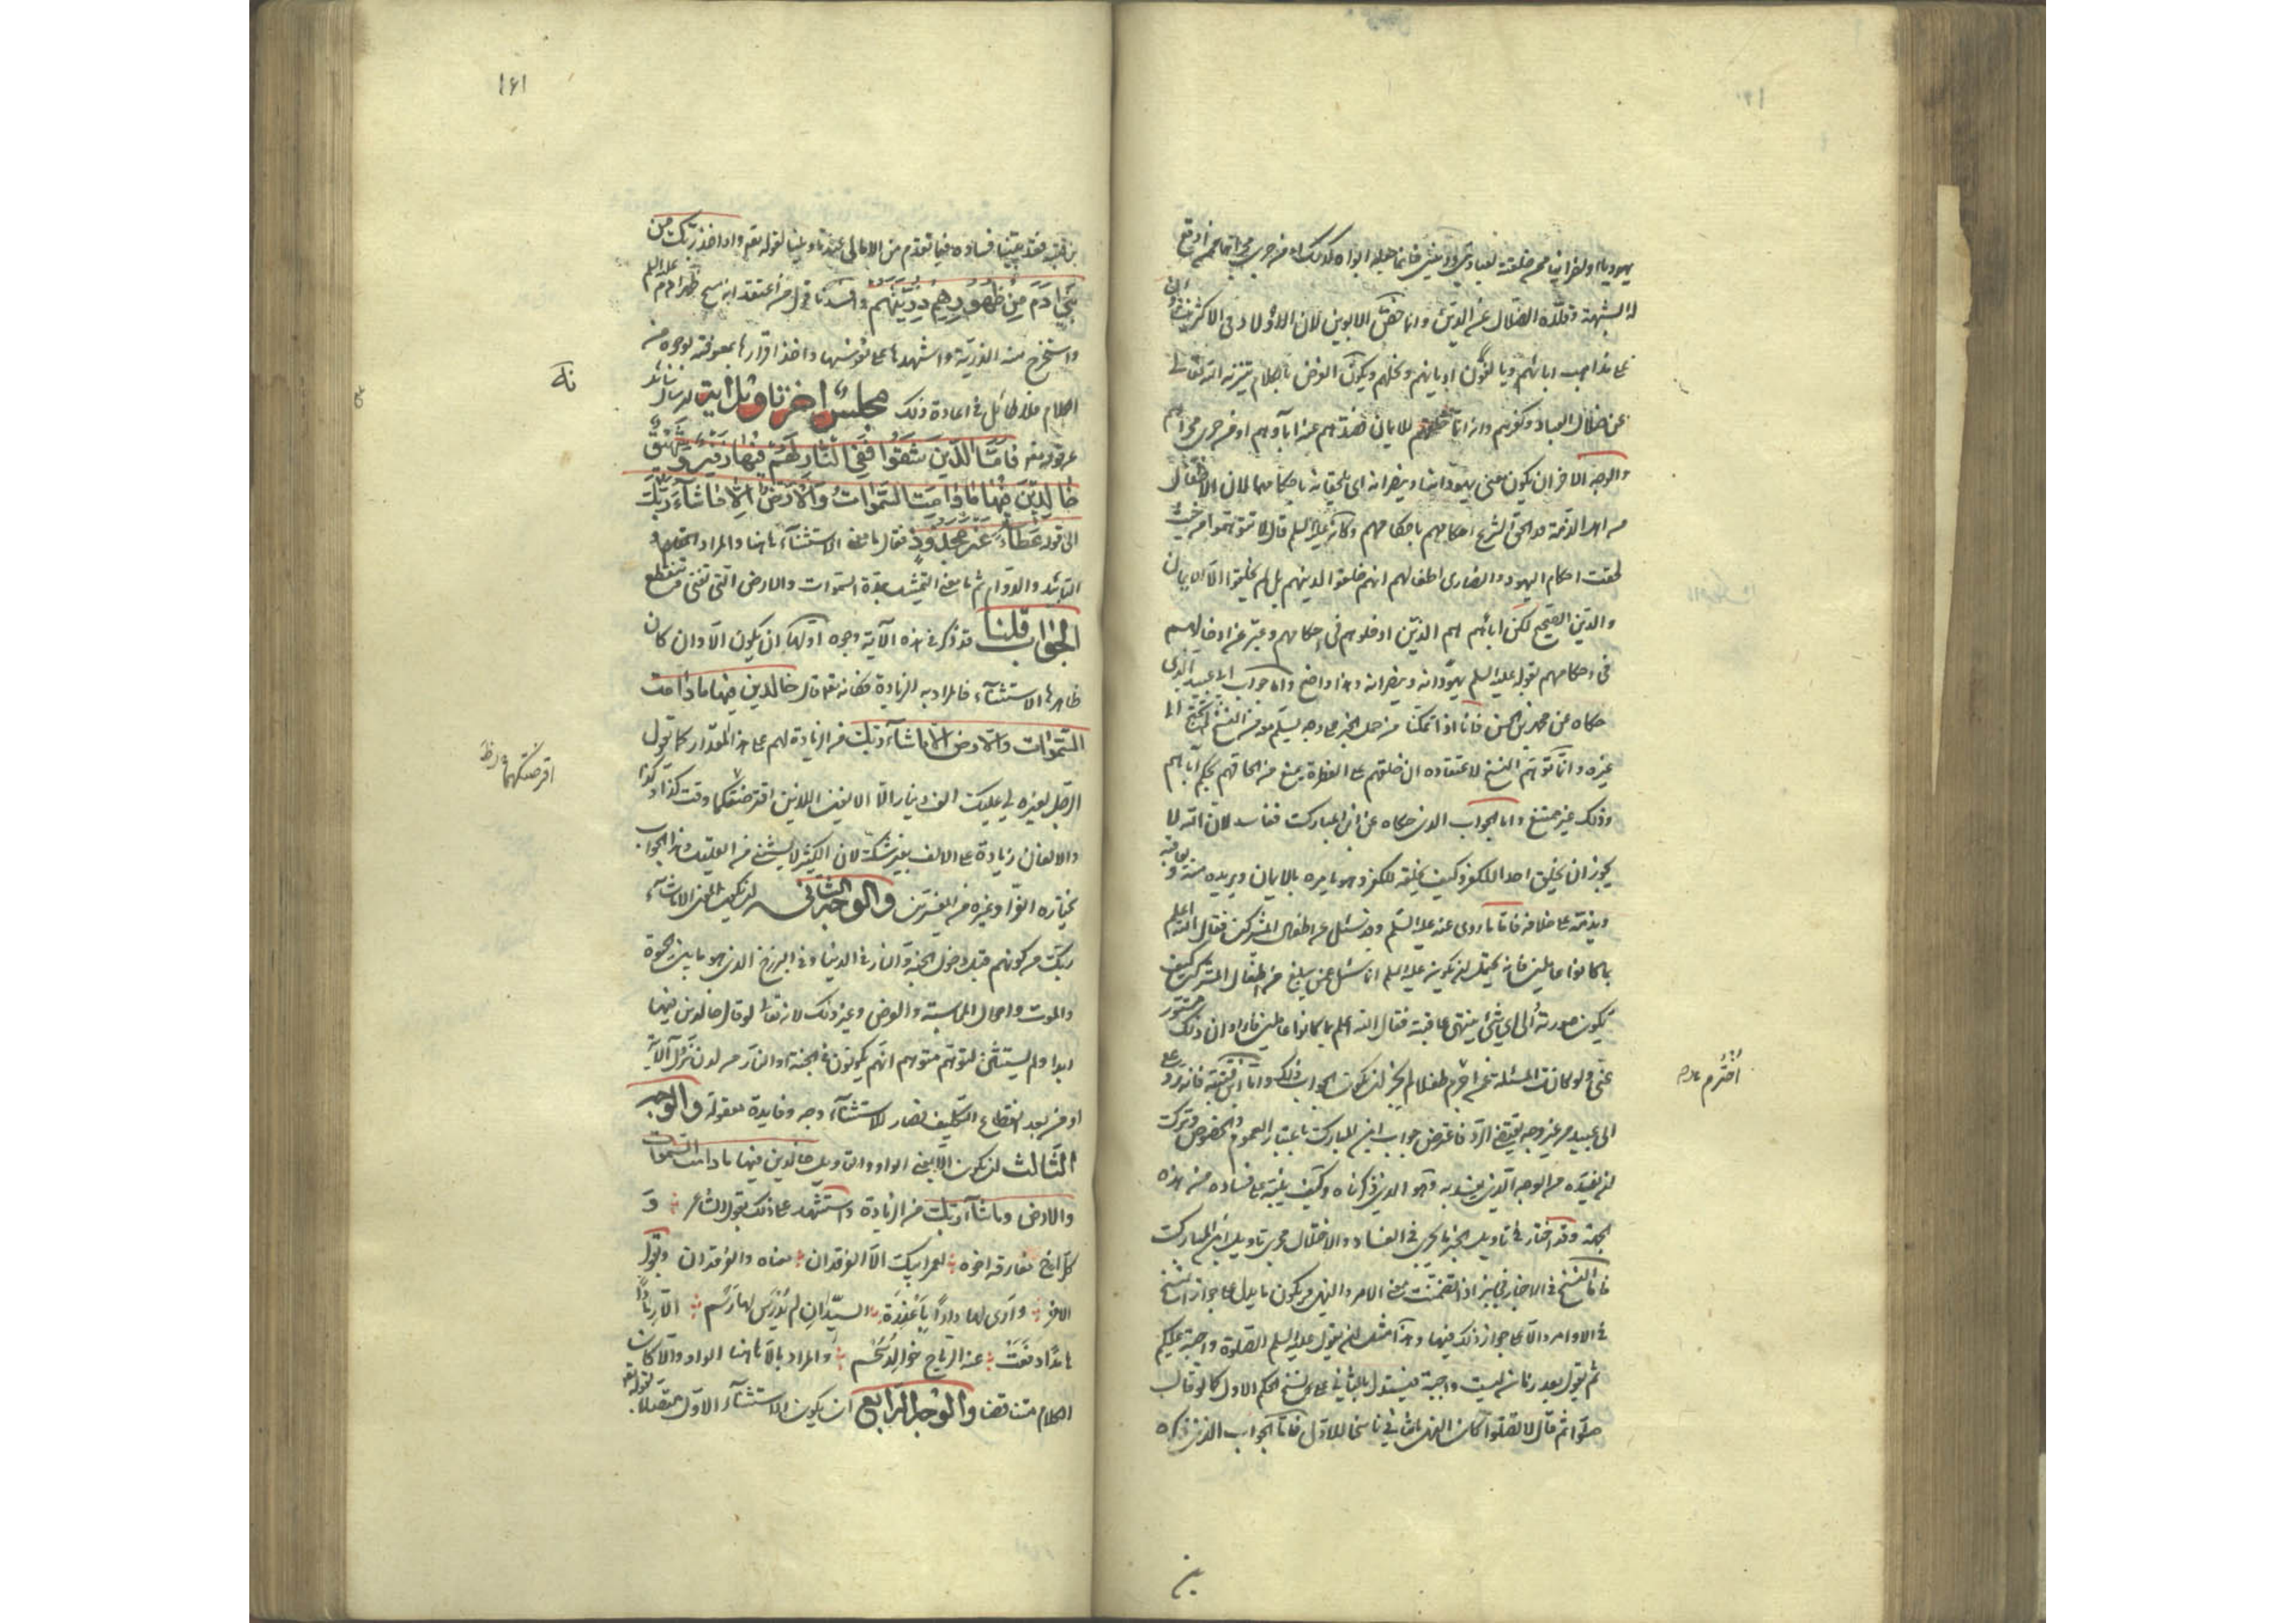 يهوديا او نصرانيا ممن خلقته لعبادتي وديني فانما جعله ابواه كذلك او من جرى مجراهما ممن اوقع
له الشبهة وقلده الضلال عن الدين وانما خص الابوين لان الاولاد في الاكثر ينشئون
على مذاهب ابائهم ويالفون اديانهم ونحلهم ويكون الغرض بالكلام تنزيه الله تعالى
عن ضلال العباد وكفرهم وانه انما خلقهم للايمان فصدهم عنه اباؤهم او من جرى مجراهم
والوجه الاخر ان يكون معنى يهودانه وينصرانه اي يلحقانه باحكامهما لان الاطفال
من اهل الذمة قد الحق الشرع احكامهم باحكامهم وكانه عليه السلم قال لا تتوهموا من حيث
لحقت احكام اليهود والنصارى اطفالهم انهم خلقوا لدينهم بل لم يخلقوا الا للايمان
والدين الصحيح لكن اباءهم هم الذين ادخلوهم في احكامهم وعبر عن ادخالهم
في احكامهم بقوله عليه السلم يهودانه وينصرانه وهذا واضح واما جواب ابي عبيد الذي
حكاه عن محمد بن الحسن فانا اذا تمكنا من حمل الخبر على وجه يسلم معه من النسخ لم نحتج الى
غيره وانما توهم النسخ لاعتقاده ان خلقهم على الفطرة يمنع من الحاقهم بحكم ابائهم
وذلك غير ممتنع واما الجواب الذي حكاه عن ابن المبارك ففاسد لان الله لا
يجوز ان يخلق احدا للكفر وكيف يخلقه للكفر وهو يامره بالايمان ويريده منه ويعاقبه
ويذمه على خلافه فاما ما روي عنه عليه السلم وقد سئل عن اطفال المشركين فقال الله اعلم
بما كانوا عاملين فانه يحتمل ان يكون عليه السلم انما سئل عمن يبلغ من اطفال المشركين كيف
يكون صورته والى اي شيء ينتهي عاقبته فقال الله اعلم بما كانوا عاملين فاراد ان ذلك مستور
عني ولو كانت المسئلة عمن اخترم طفلا لم يجز ان يكون الجواب ذلك واما ابن قتيبة فانه رد على
ابي عبيد من غير وجه يقتضي الرد فاعترض جواب ابن المبارك باعتبار العموم والخصوص وترك
ان يفسده من الوجه الذي يفسد به وهو الذي ذكرناه وكيف ينبه على فساده من هذه
الجهة وقد اختار في تاويل الخبر ما يجري في الفساد والاختلال مجرى تاويل ابن المبارك
فاما النسخ في الاخبار فجايز اذا تضمنت معنى الامر والنهي ويكون ما يدل على جواز النسخ
في الاوامر دالا على جواز ذلك فيها وهذا مثل ان يقول عليه السلم الصلوة واجبة عليكم
ثم يقول بعد زمان ليست واجبة فيستدل بالثاني على نسخ الحكم الاول كما لو قال
صلوا ثم قال لا تصلوا كان النهي الثاني ناسخا للاول فاما الجواب الذي ذكره
اخترم
بن
١٦١
ابن قتيبة فقد بينا فساده فيما تقدم من الامالي عند تاويلنا لقوله تعالى واذ اخذ ربك من
بني آدم من ظهورهم ذريتهم وافسدنا قول من اعتقد انه مسح ظهر ادم عليه السلم
واستخرج منه الذرية واشهدها على نفوسها واخذ اقرارها بمعرفته بوجوه من
الكلام فلا طائل في اعادة ذلك مجلس اخر تاويل اية ان سال سائل
عن قوله تعالى فاما الذين شقوا ففي النار لهم فيها زفير وشهيق
خالدين فيها ما دامت السموات والارض الا ما شاء ربك
الى قوله عطاء غير مجذوذ فقال ما معنى الاستثناء هاهنا والمراد
التابيد والدوام ثم ما معنى التمثيل بمدة السموات والارض التي تفنى وتنقطع
الجواب قلنا قد ذكر في هذه الآية وجوه اولها ان يكون الا وان كان
ظاهرها الاستثناء فالمراد به الزيادة فكانه تعالى قال خالدين فيها ما دامت
السموات والارض الا ما شاء ربك من الزيادة لهم على هذا المقدار كما يقول
الرجل لغيره لي عليك الف دينار الا الالفين اللذين اقرضتكهما وقت كذا وكذا
والالفان زيادة على الالف بغير شك لان الكثير لا يستثنى من القليل وهذا الجواب
يختاره الفراء وغيره من المفسرين والوجه الثاني ان يكون المعنى الا ما شاء
ربك من كونهم قبل دخول الجنة والنار في الدنيا وفي البرزخ الذي هو ما بين الحيوة
والموت واحوال المحاسبة والعرض وغير ذلك لانه تعالى لو قال خالدين فيها
ابدا ولم يستثن لتوهم متوهم انهم يكونون في الجنة والنار من لدن نزول الآية
او من بعد انقطاع التكليف فصار للاستثناء وجه وفايدة معقولة والوجه
الثالث ان تكون الا بمعنى الواو والتاويل خالدين فيها ما دامت السموات
والارض وما شاء ربك من الزيادة واستشهد على ذلك بقول الشاعر و
كل اخ مفارقه اخوه لعمر ابيك الا الفرقدان معناه والفرقدان وبقول
الاخر وارى لها دارا باغدرة السيدان لم يدرس لها رسم الا رمادا
هامدا دفعت عنه الرياح خوالد سحم والمراد بالا هاهنا الواو والا كان
الكلام متناقضا والوجه الرابع ان يكون الاستثناء الاول متصلا بقوله
اقرضتكهما